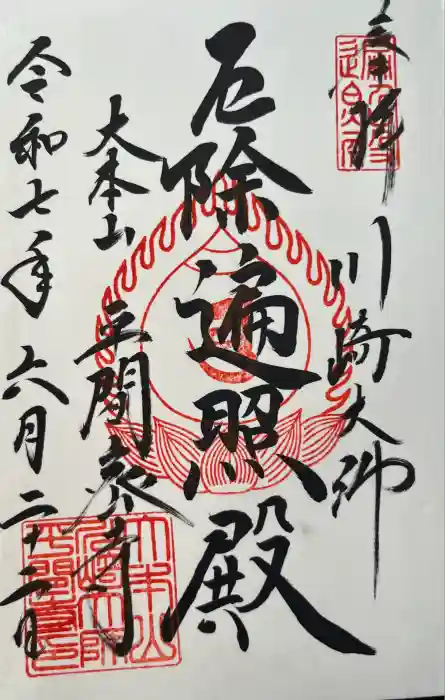 奉拝
川崎大師
厄除遍照殿
大本山
平間寺
令和七年六月二十二日